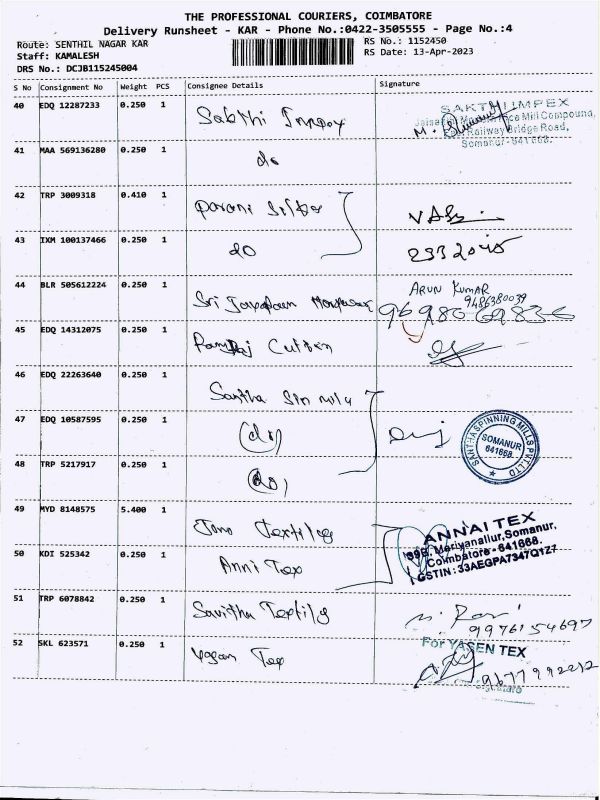 THE PROFESSIONAL COURIERS, COIMBATORE
Delivery Runsheet - KAR - Phone No.:0422-3505555 - Page No.:4
Route: SENTHIL NAGAR KAR
RS No.: 1152450
Staff: KAMALESH
RS Date: 13-Apr-2023
DRS No.: DCJB115245004
S No Consignment No Weight PCS Consignee Details Signature
40 EDQ 12287233 0.250 1 Sakthi Impex
SAKTHI IMPEX
Mill Compound,
Railway Bridge Road,
Somanur - 641668.
41 MAA 569136280 0.250 1 do
42 TRP 3009318 0.410 1
43 IXM 100137466 0.250 1 do
44 BLR 505612224 0.250 1 Sri
ARUN KUMAR
9486380039
45 EDQ 14312075 0.250 1 Pankaj Cotton
46 EDQ 22263640 0.250 1 Santha Spin mills
47 EDQ 10587595 0.250 1 (do)
SANTHA SPINNING MILLS PVT LTD
SOMANUR
641668.
48 TRP 5217917 0.250 1 (do)
49 MYD 8148575 5.400 1 Textiles
ANNAI TEX
Meriyanallur, Somanur,
Coimbatore - 641668.
GSTIN : 33AEGPA7347Q1Z7
50 KDI 525342 0.250 1 Anni Tex
51 TRP 6078842 0.250 1 Savitha Textiles
9976154697
52 SKL 623571 0.250 1 Tex
For YASEN TEX